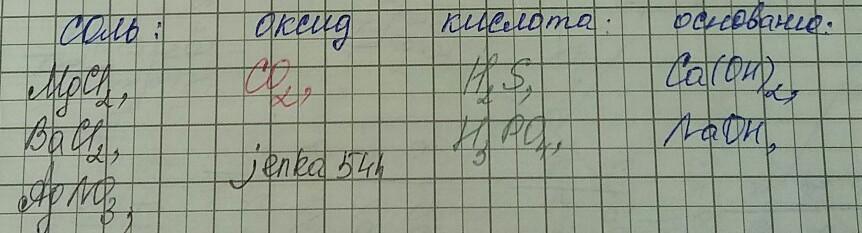 соль: оксид кислота: основание:
MgCl₂, CO₂, H₂S, Ca(OH)₂,
BaCl₂, H₃PO₄, NaOH,
jenka 544
AgNO₃,